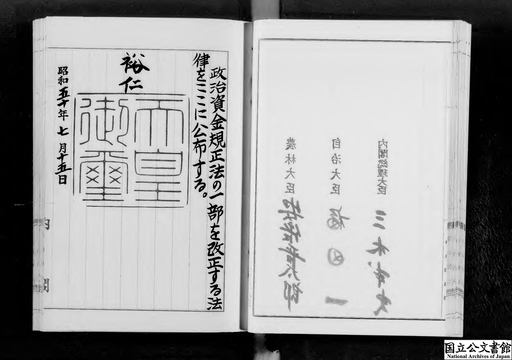 内閣総理大臣 三木武夫
自治大臣 福田一
農林大臣 安倍晋太郎
政治資金規正法の一部を改正する法
律をここに公布する。
裕仁
天皇
御璽
昭和五十年七月十五日
内閣
国立公文書館
National Archives of Japan